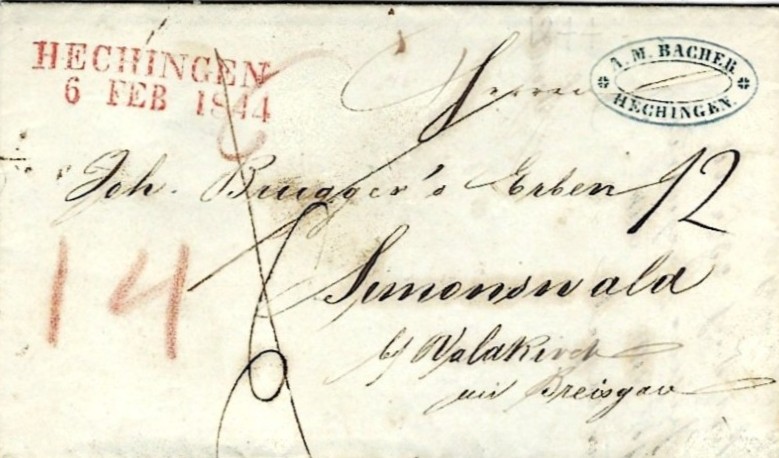 HECHINGEN
6 FEB 1844
A. M. BACHER
HECHINGEN.
Herrn
Joh. Brugger's Erben
12
14
Simonswald
b/ Waldkirch
im Breisgau